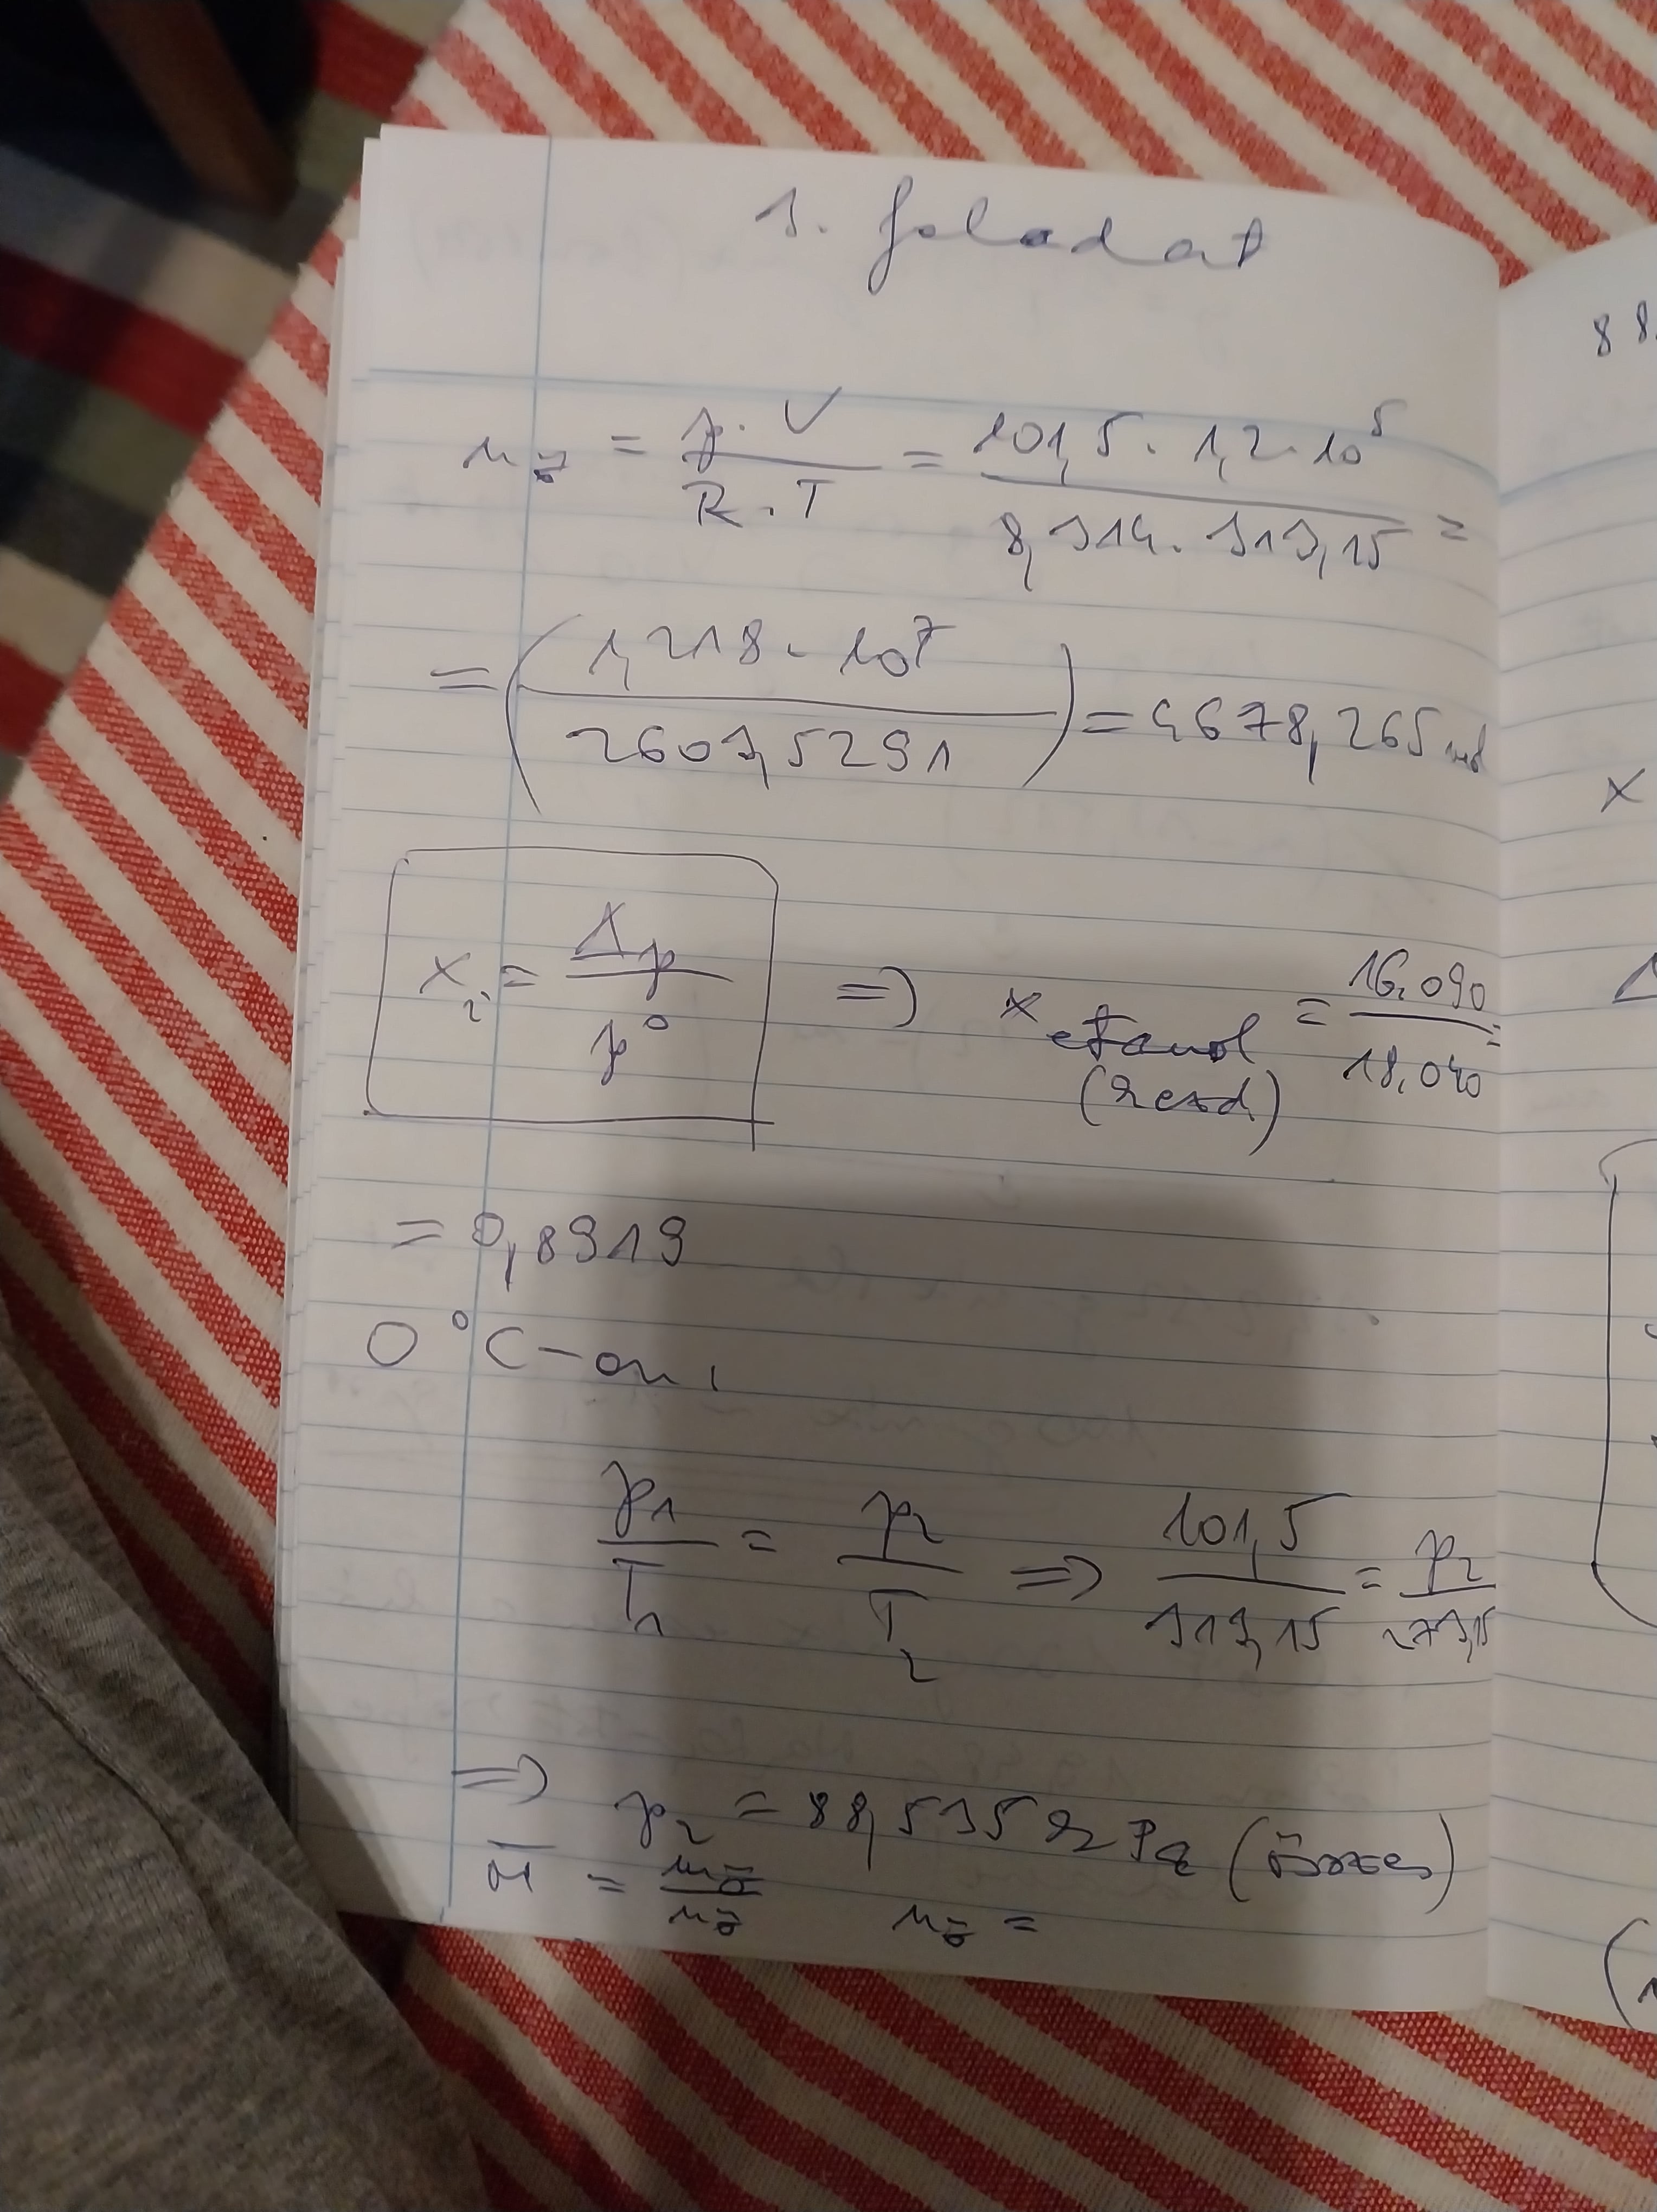 1. feladat
n_ö = p·V / R·T = 101,5 · 1,2·10^5 / 8,314 · 313,15 =
= (1,218 · 10^7 / 2603,5291) = 4678,265 mol
x_i = Δp / p° => x etanol (kezd) = 16.090 / 18.040 =
= 0,8919
0 °C-on,
p1 / T1 = p2 / T2 => 101,5 / 313,15 = p2 / 273,15
=> p2 = 88,535 kPa (összes)
M̄ = m_ö / n_ö n_ö =
88.
x